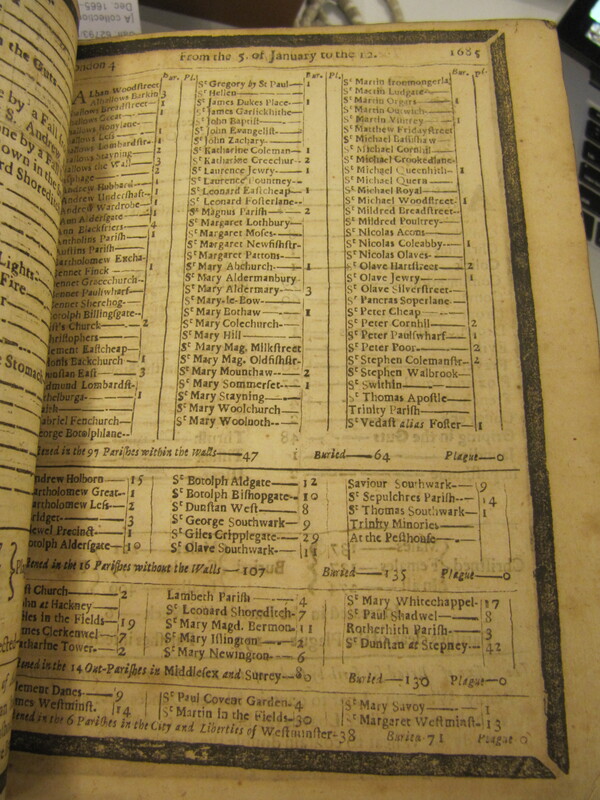 London 4 From the 5. of January to the 12. 1685
Bur. Pl. Bur. Pl. Bur. Pl.
Alban Woodstreet
Alhallows Barkin 3
allows Breadstreet 1
allows Great 1
allows Honylane
allows Less
allows Lombardstr. 1
allows Stayning 2
allows the Wall 3
Andrew Hubbard 1
Andrew Undershaft
Andrew Wardrobe
Ann Aldersgate
Ann Blackfriers
Antholins Parish 1
Austins Parish
artholomew Excha
ennet Finck 1
ennet Gracechurch
ennet Paulswharf
ennet Sherehog
otolph Billingsgate
ist's Church 2
istophers
lement Eastcheap
ionis Backchurch 1
unstan East 3
dmund Lombardst
thelburga 1
aith
abriel Fenchurch
eorge Botolphlane
St Gregory by St Paul 1
St Hellen
St James Dukes Place 1
St James Garlickhithe
St John Baptist
St John Evangelist
St John Zachary
St Katharine Coleman 1
St Katharine Creechur 2
St Laurence Jewry 1
St Laurence Pountney
St Leonard Eastcheap 1
St Leonard Fosterlane
St Magnus Parish 2
St Margaret Lothbury
St Margaret Moses
St Margaret Newfishstr
St Margaret Pattons
St Mary Abchurch 1
St Mary Aldermanbury
St Mary Aldermary 3
St Mary-le-Bow
St Mary Bothaw 1
St Mary Colechurch
St Mary Hill
St Mary Mag. Milkstreet
St Mary Mag. Oldfishstr
St Mary Mounchaw 2
St Mary Sommerset 1
St Mary Stayning
St Mary Woolchurch
St Mary Woolnoth
St Martin Ironmongerla
St Martin Ludgate
St Martin Orgers 1
St Martin Outwich
St Martin Vintrey 1
St Matthew Fridaystreet
St Michael Bassishaw
St Michael Cornhill
St Michael Crookedlane
St Michael Queenhith 1
St Michael Quern
St Michael Royal
St Michael Woodstreet 1
St Mildred Breadstreet
St Mildred Poultrey
St Nicolas Acons
St Nicolas Coleabby 1
St Nicolas Olaves
St Olave Hartstreet 2
St Olave Jewry 1
St Olave Silverstreet
St Pancras Soperlane
St Peter Cheap
St Peter Cornhill 2
St Peter Paulswharf 1
St Peter Poor 2
St Stephen Colemanstr 2
St Stephen Walbrook
St Swithin
St Thomas Apostle
Trinity Parish
St Vedast alias Foster 1
tened in the 97 Parishes within the Walls 47 Buried 64 Plague 0
Andrew Holborn 15
artholomew Great 1
artholomew Less 2
ridget 3
ewel Precinct 1
otolph Aldersgate 10
St Botolph Aldgate 12
St Botolph Bishopgate 10
St Dunstan West 8
St George Southwark 9
St Giles Cripplegate 29
St Olave Southwark 11
Saviour Southwark 9
St Sepulchres Parish 14
St Thomas Southwark 1
Trinity Minories
At the Pesthouse
tened in the 16 Parishes without the Walls 107 Buried 135 Plague 0
st Church 2
hn at Hackney
iles in the Fields 19
mes Clerkenwel 7
atharine Tower 2
Lambeth Parish 4
St Leonard Shoreditch 7
St Mary Magd. Bermon. 11
St Mary Islington 2
St Mary Newington 6
St Mary Whitechappel 17
St Paul Shadwel 8
Rotherhith Parish 3
St Dunstan at Stepney 42
tened in the 14 Out-Parishes in Middlesex and Surrey 80 Buried 130 Plague 0
lement Danes 9
mes Westminst. 14
St Paul Covent Garden 4
St Martin in the Fields 30
St Mary Savoy 1
St Margaret Westminst 13
tened in the 6 Parishes in the City and Liberties of Westminster 38 Buried 71 Plague 0